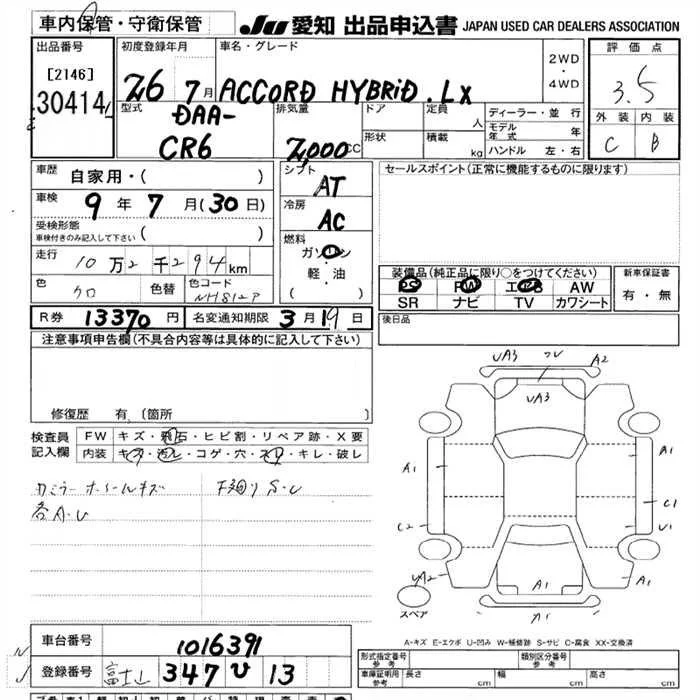 車内保管・守衛保管
JU 愛知 出品申込書 JAPAN USED CAR DEALERS ASSOCIATION
出品番号
[2146]
30414
初度登録年月
26 7月
車名・グレード
ACCORD HYBRID . LX
2WD
・
4WD
評価点
3.5
外装 内装
C B
型式
DAA-
CR6
排気量
2,000CC
ドア
形状
定員 人
積載 kg
ディーラー・並行
モデル年式 年
ハンドル 左・右
車歴
自家用・( )
車検
9年 7月(30日)
受検形態
車検付きのみ記入して下さい ( )
走行
10万2千294km
色
クロ
色替
色コード
NH812P
シフト
AT
冷房
AC
燃料
ガソリン
軽・油
( )
セールスポイント(正常に機能するものに限ります)
装備品(純正品に限り○をつけてください)
PS PW エアB AW
SR ナビ TV カワシート
新車保証書
有・無
R券 13370円
名変通知期限 3月19日
後日品
注意事項申告欄(不具合内容等は具体的に記入して下さい)
修復歴 有(箇所
検査員
記入欄
FW キズ・飛石・ヒビ割・リペア跡・X要
内装 キズ・汚レ・コゲ・穴・スレ・キレ・破レ
カミラー ホイールキズ
各A.U
下廻りS.U
UA3
A2
UA3
A1
A1
C1
C2
U1
UA2
A1
A1
A1
スペア
A-キズ E-エクボ U-凹み W-補修跡 S-サビ C-腐食 XX-交換済
車台番号
1016391
登録番号
富士山 347 ひ 13
形式指定番号
参考
類別区分番号
参考
車庫証明用
参考
長さ cm
幅 cm
高さ cm